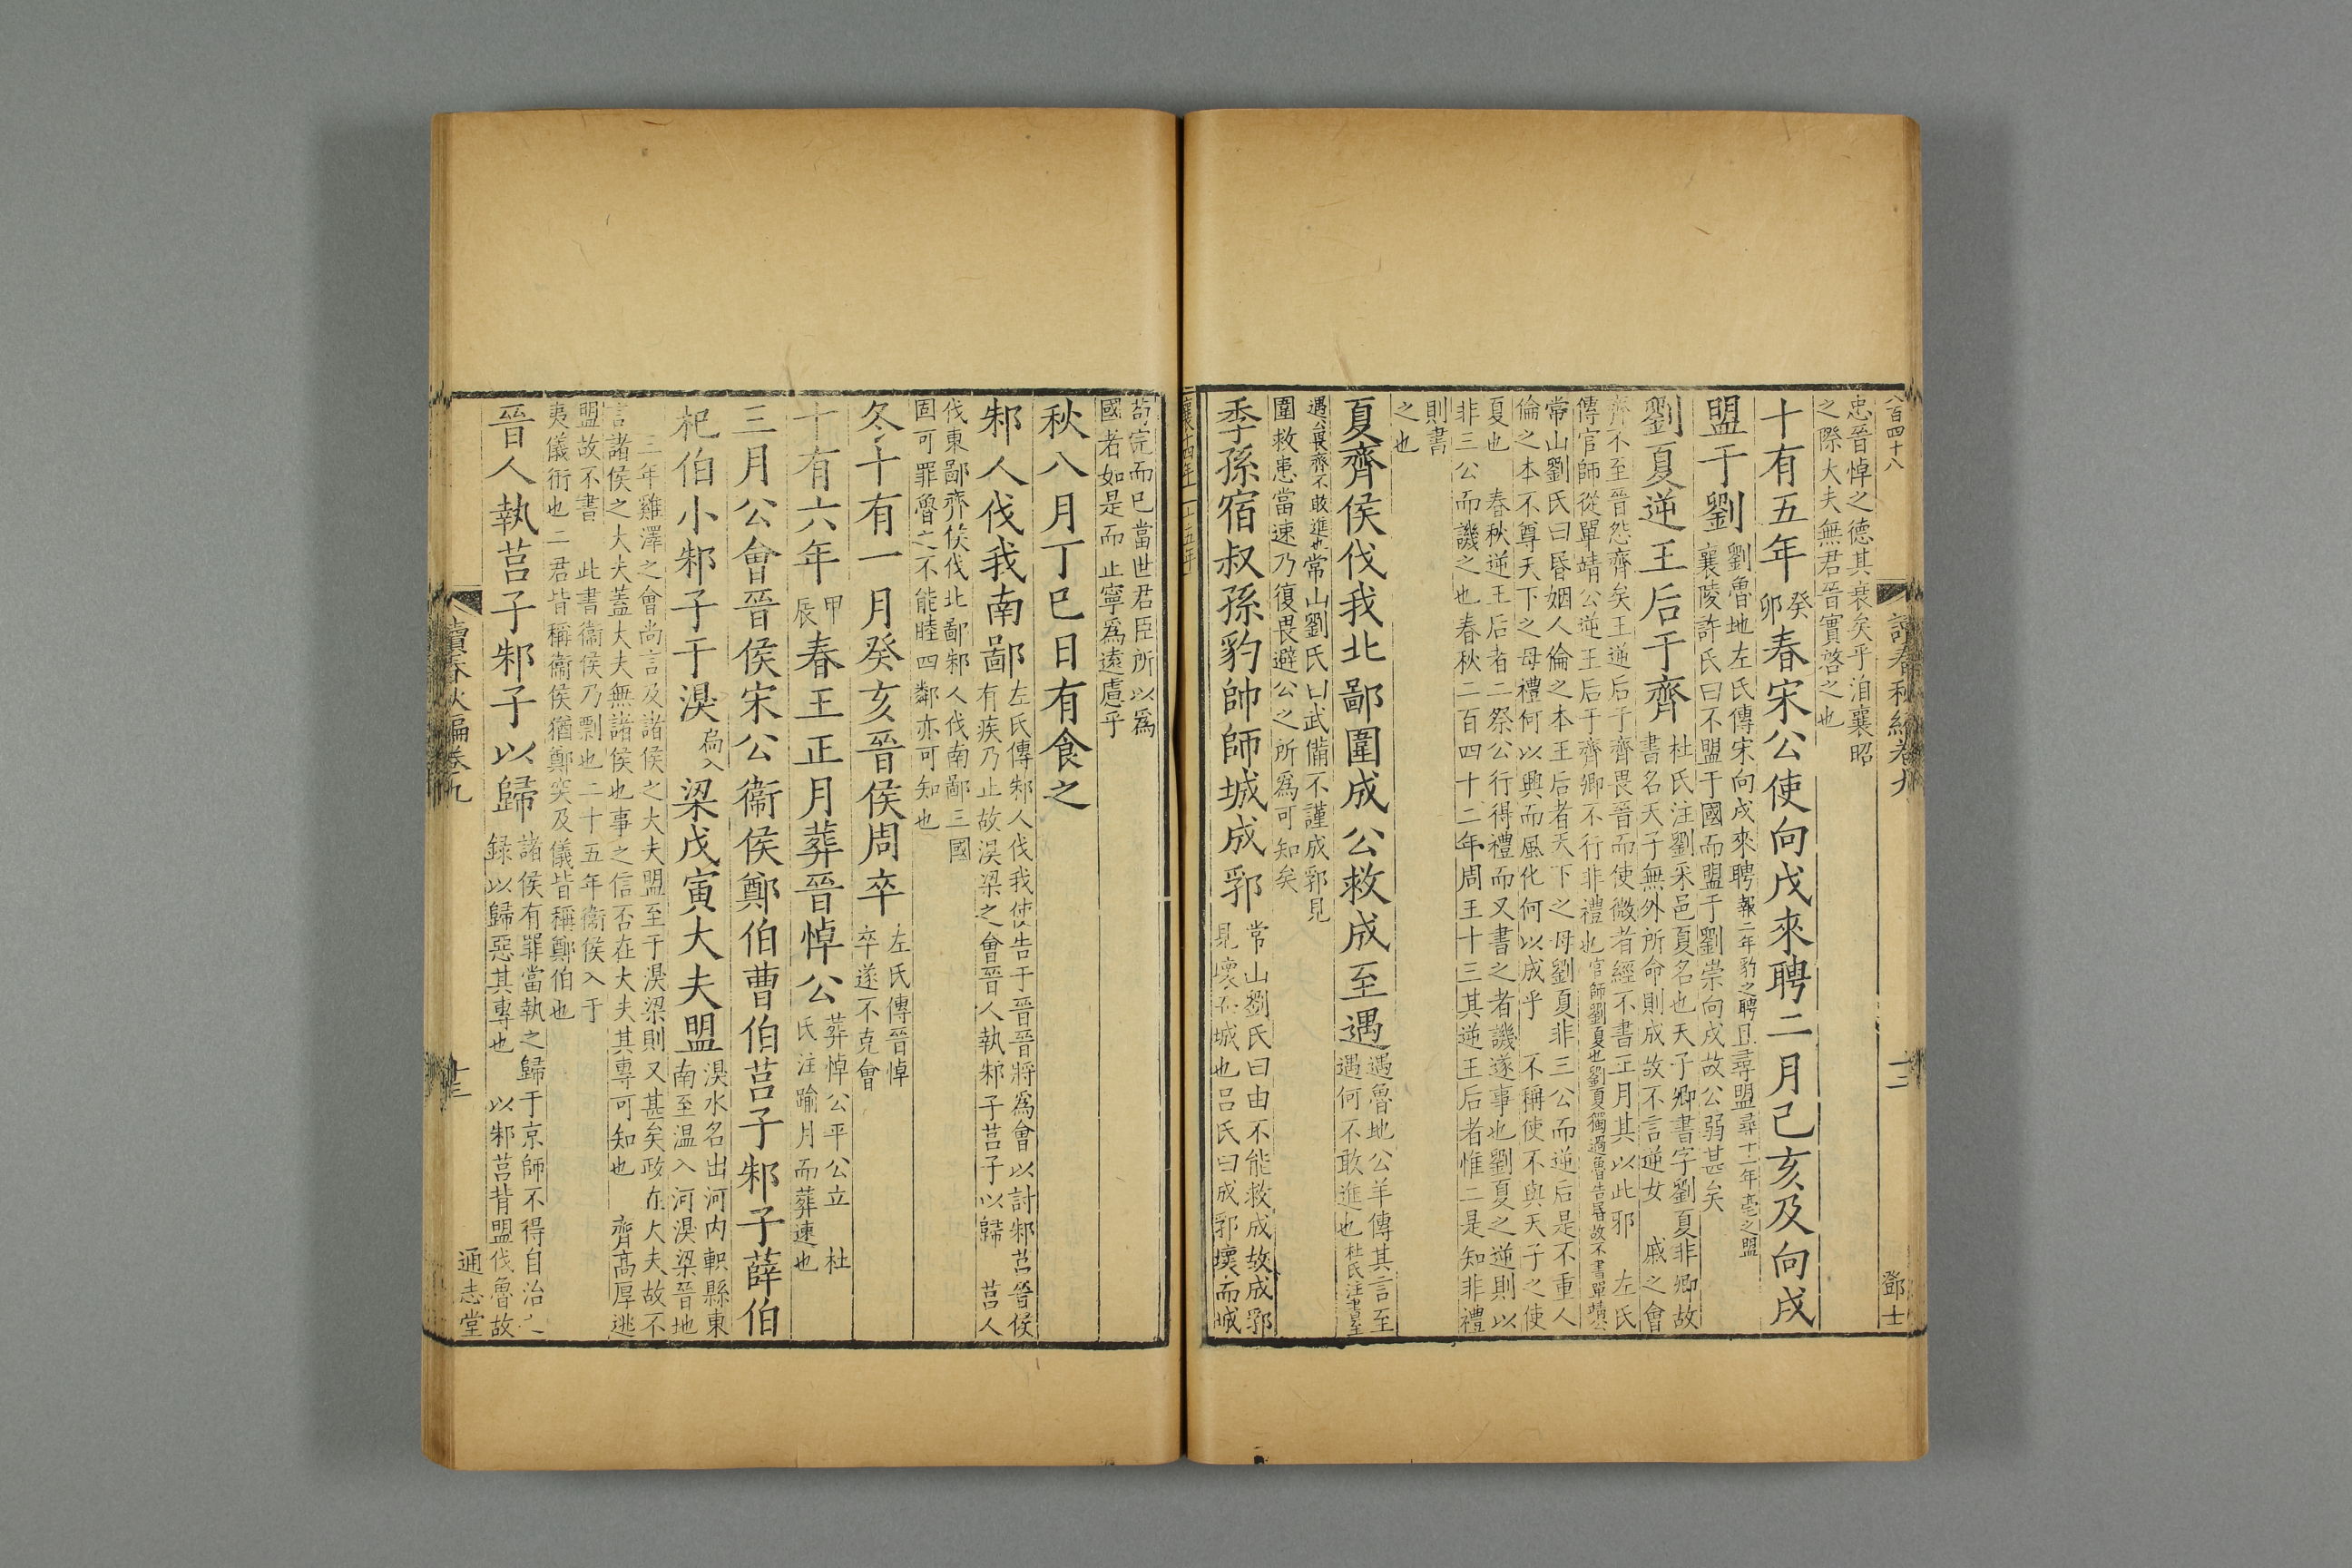 八百四十八
讀春秋編卷九
十二
鄧士
忠晉悼之德其衰矣乎洎襄昭
之際大夫無君晉實啓之也
十有五年癸卯春宋公使向戌來聘二月己亥及向戌
盟于劉
劉魯地左氏傳宋向戌來聘報二年豹之聘且尋盟尋十一年亳之盟
襄陵許氏曰不盟于國而盟于劉崇向戌故公弱甚矣
劉夏逆王后于齊
杜氏注劉采邑夏名也天子卿書字劉夏非卿故
書名天子無外所命則成故不言逆女 戚之會
齊不至晉怨齊矣王逆后于齊畏晉而使微者經不書正月其以此邪 左氏
傳官師從單靖公逆王后于齊卿不行非禮也官師劉夏也劉夏獨過魯告昏故不書單靖公
常山劉氏曰昏姻人倫之本王后者天下之母劉夏非三公而逆后是不重人
倫之本不尊天下之母禮何以興而風化何以成乎 不稱使不與天子之使
夏也 春秋逆王后者二祭公行得禮而又書之者譏遂事也劉夏之逆則以
非三公而譏之也春秋二百四十二年周王十三其逆王后者惟二是知非禮
則書
之也
夏齊侯伐我北鄙圍成公救成至遇
遇魯地公羊傳其言至
遇何不敢進也杜氏注書至
遇公畏齊不敢進也常山劉氏曰武備不謹成郛見
圍救患當速乃復畏避公之所爲可知矣
季孫宿叔孫豹帥師城成郛
常山劉氏曰由不能救成故成郛
見壞而城也呂氏曰成郛壞而城
襄十四年 十五年
苟完而已當世君臣所以爲
國者如是而止寧爲遠慮乎
秋八月丁巳日有食之
邾人伐我南鄙
左氏傳邾人伐我使告于晉晉將爲會以討邾莒晉侯
有疾乃止故湨梁之會晉人執邾子莒子以歸 莒人
伐東鄙齊侯伐北鄙邾人伐南鄙三國
固可罪魯之不能睦四鄰亦可知也
冬十有一月癸亥晉侯周卒
左氏傳晉悼
卒遂不克會
十有六年甲辰春王正月葬晉悼公
葬悼公平公立 杜
氏注踰月而葬速也
三月公會晉侯宋公衞侯鄭伯曹伯莒子邾子薛伯
杞伯小邾子于湨梁戊寅大夫盟
湨水名出河内軹縣東
南至温入河湨梁晉地
三年雞澤之會尚言及諸侯之大夫盟至于湨梁則又甚矣政在大夫故不
言諸侯之大夫蓋大夫無諸侯也事之信否在大夫其專可知也 齊高厚逃
盟故不書 此書衞侯乃剽也二十五年衞侯入于
夷儀衎也二君皆稱衞侯猶鄭突及儀皆稱鄭伯也
晉人執莒子邾子以歸
諸侯有罪當執之歸于京師不得自治之
録以歸惡其專也 以邾莒背盟伐魯故
讀春秋編卷九
十三
通志堂